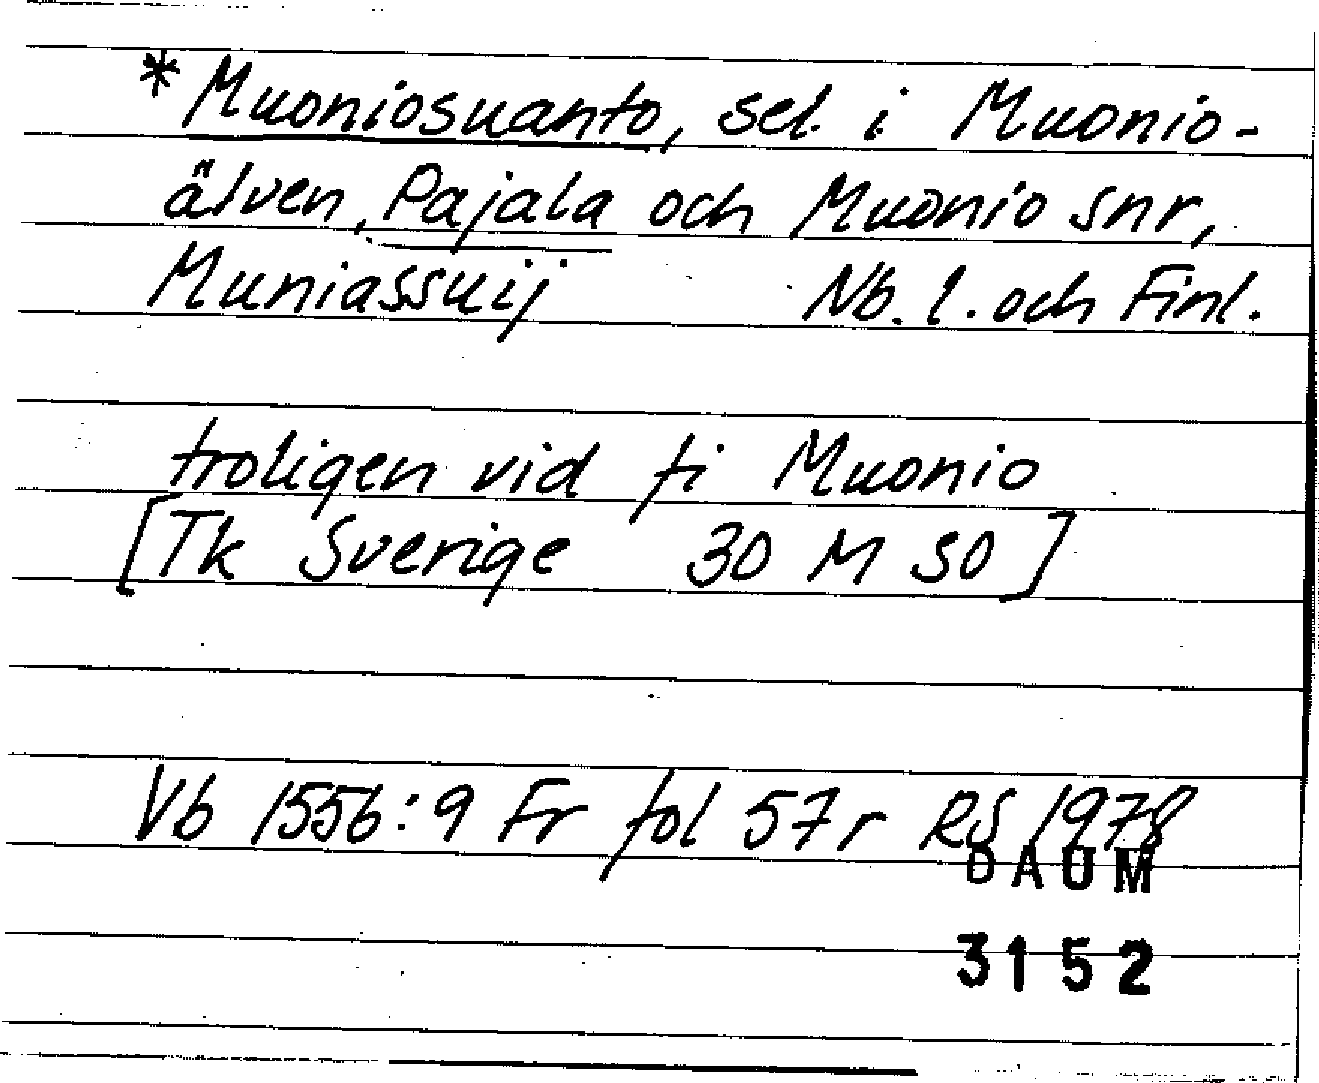 *Muoniosuanto, sel. i Muonio-
älven, Pajala och Muonio snr,
Muniassuij Nb. l. och Finl.
troligen vid fi Muonio
[Tk Sverige 30 M SO]
Vb 1556:9 Fr fol 57r RS 1978
DAUM
3152